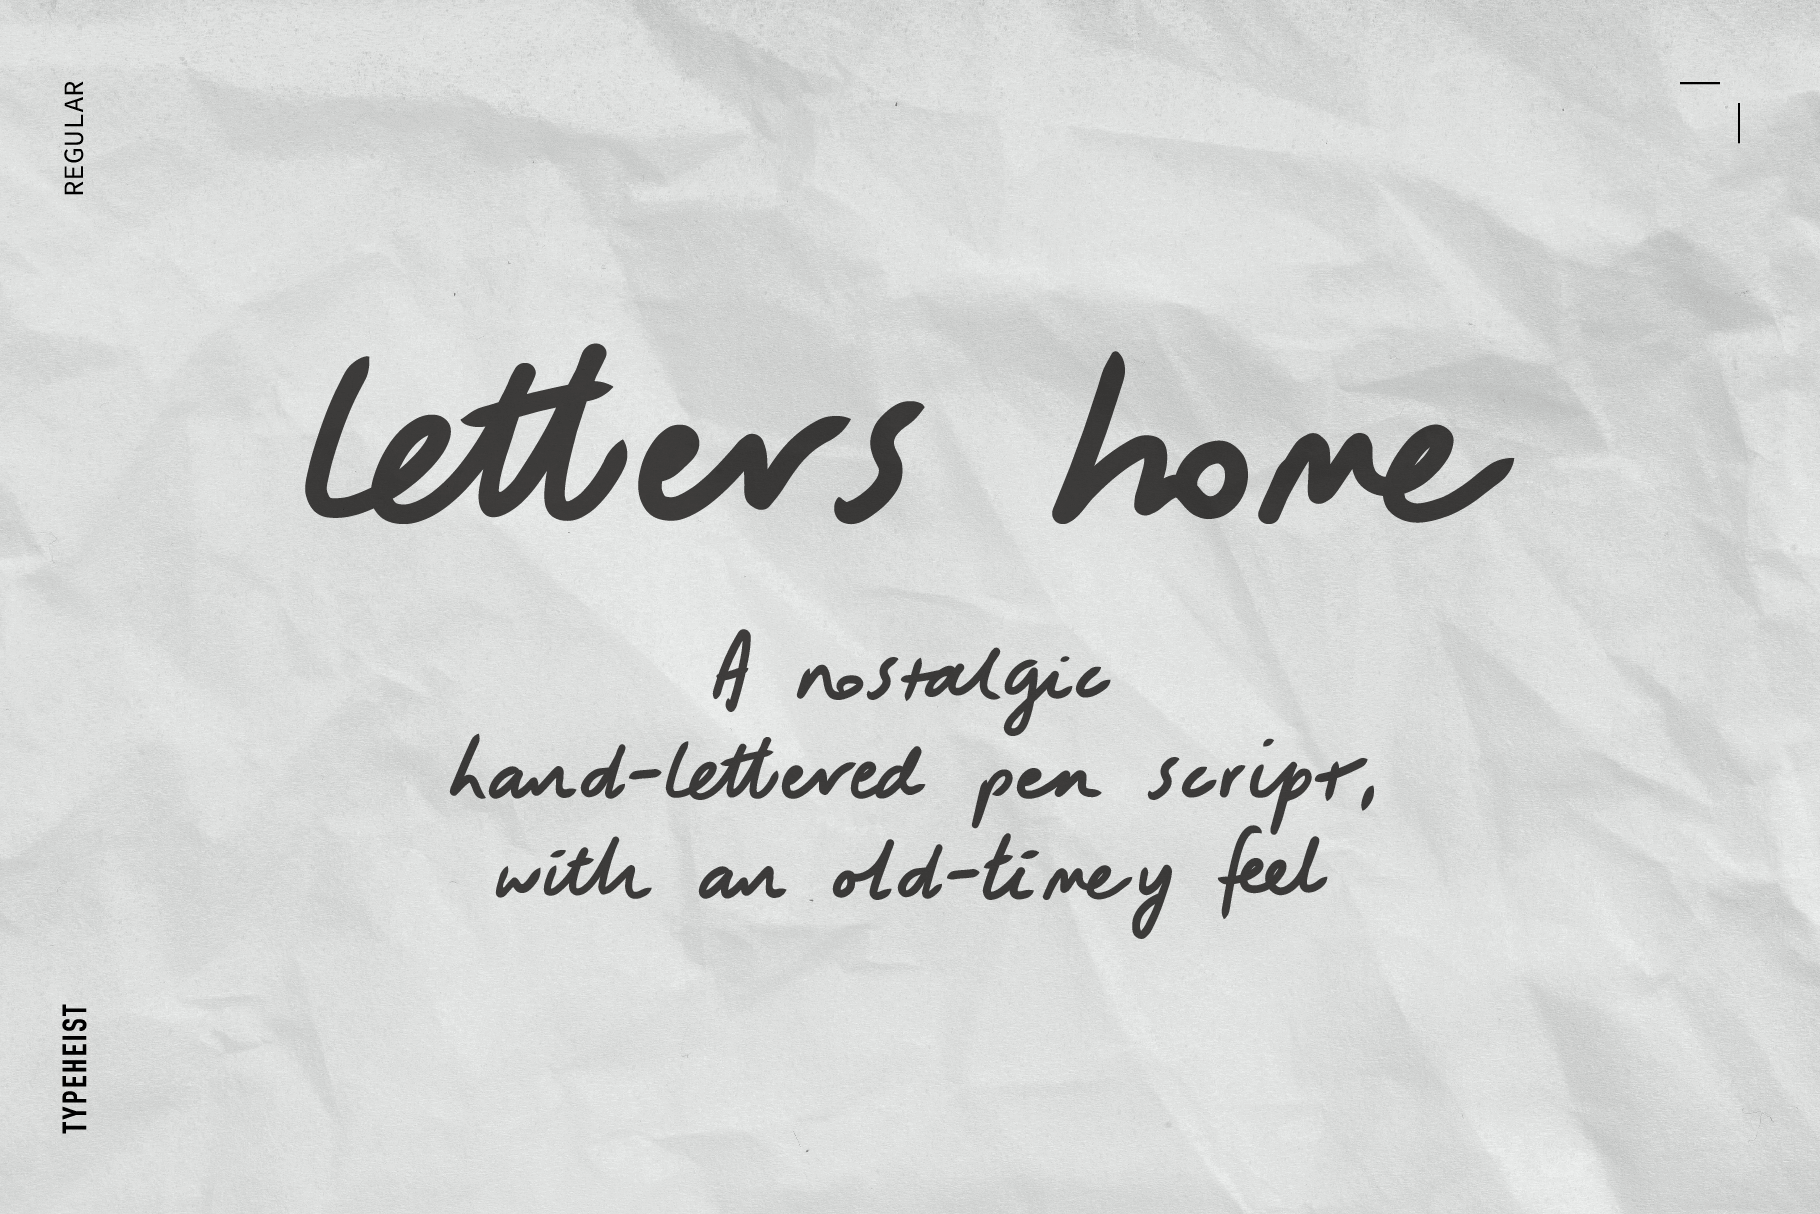 REGULAR
letters home
A nostalgic
hand-lettered pen script,
with an old-timey feel
TYPEHEIST